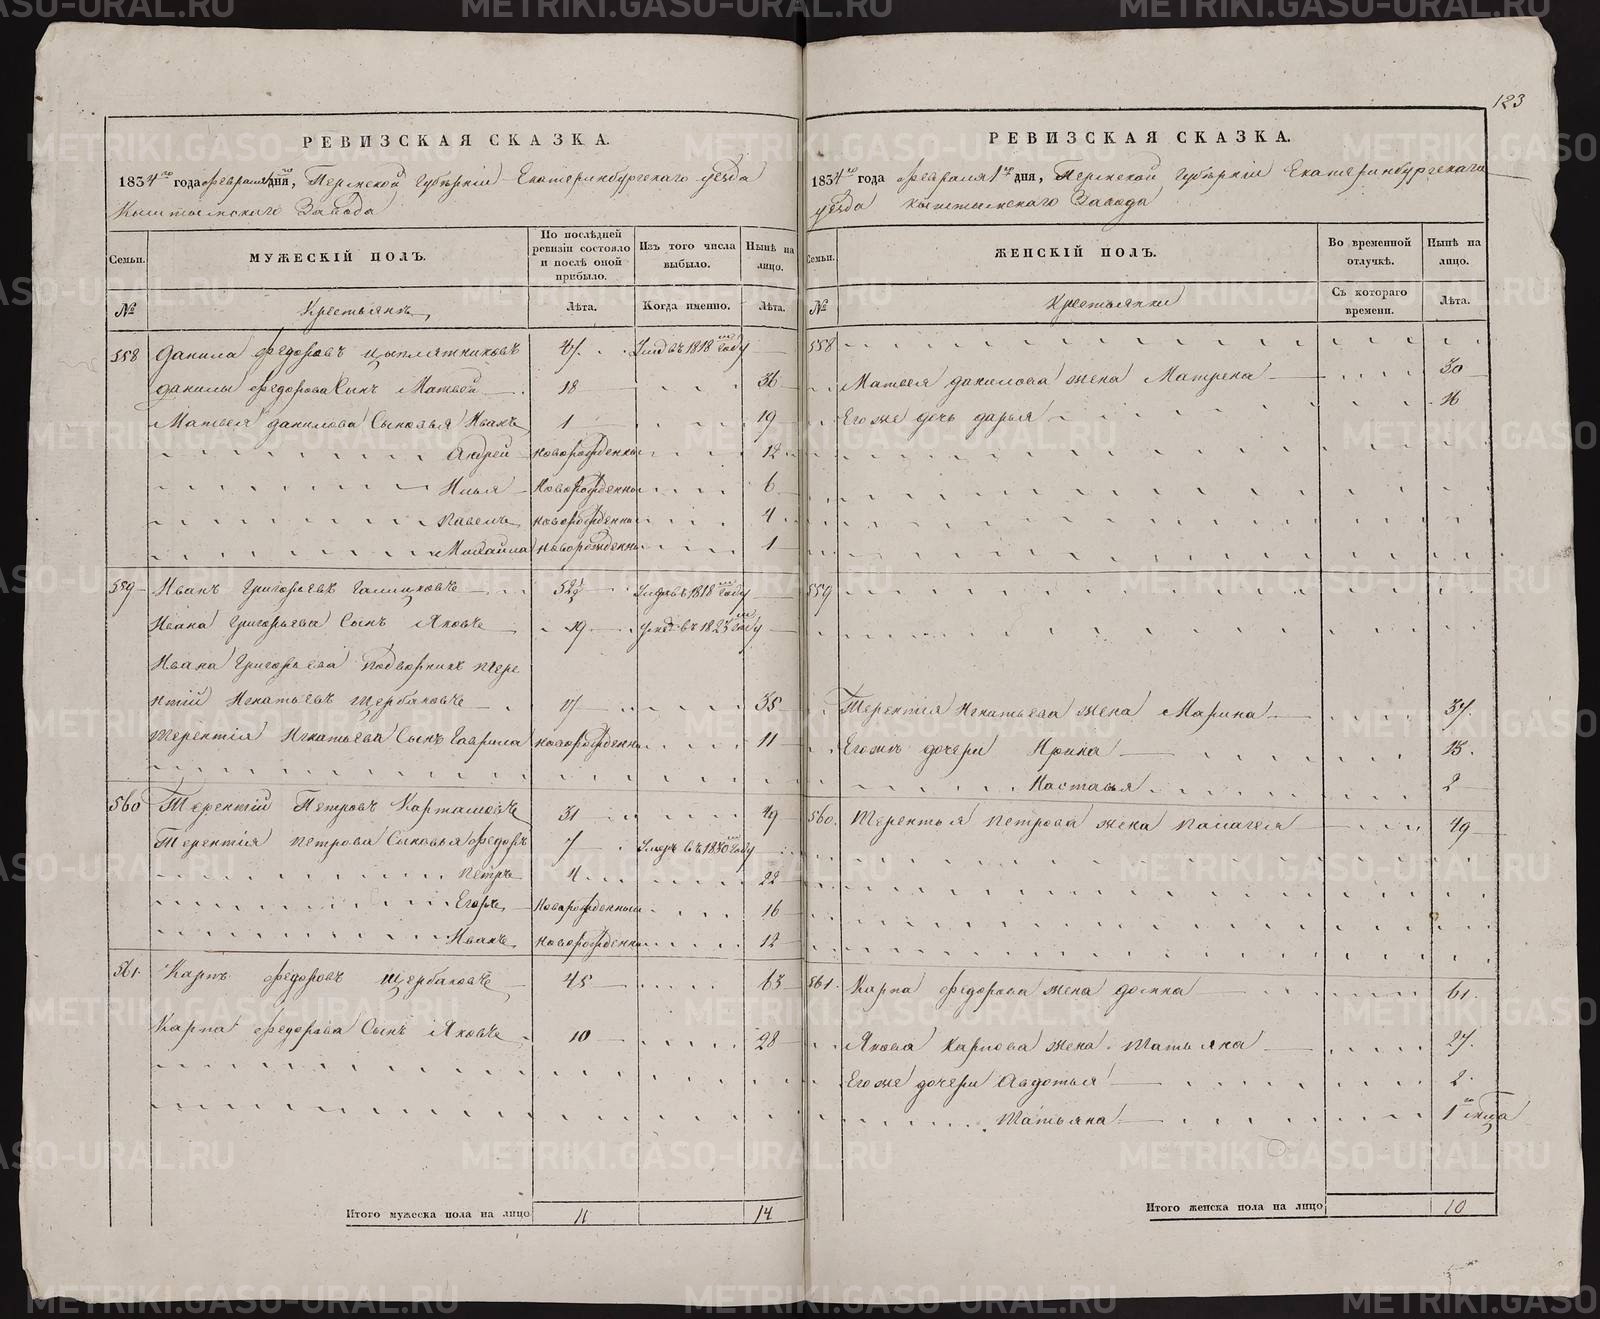 123
РЕВИЗСКАЯ СКАЗКА.
1834го года февраля дня, Пермской губернiи Екатеринбургскаго уезда
Кыштымскаго Завода
Семьи.
МУЖЕСКIЙ ПОЛЪ.
По послѣдней ревизiи состояло и послѣ оной прибыло.
Изъ того числа выбыло.
Нынѣ на лицо.
№
Крестьянъ
Лѣта.
Когда именно.
Лѣта.
558 Данила Федоровъ Цыплятниковъ 47 1818 году
Данилы Федорова Сынъ Матвей 18 36
Матвея Данилова Сыновья Иванъ 1 19
Андрей новорожденны 12
Илья новорожденны 6
Павелъ новорожденны 4
Михайла новорожденны 1
559 Иванъ Григорьевъ 52 1818 году
Ивана Григорьева Сынъ Яковъ 19
Ивана Григорьева Подворникъ Тере
нтiй Игнатьевъ Щербаковъ 17 35
Терентiя Игнатьева Сынъ Гаврила новорожденны 11
560 Терентiй Петровъ Карташовъ 31 49
Терентiя Петрова Сыновья Федоръ 7 въ 1830 году
Петръ 4 22
Егоръ Новорожденный 16
Иванъ новорожденны 12
561. Карпъ Федоровъ Щербаковъ 45 63
Карпа Федорова Сынъ Яковъ 10 28
Итого мужеска пола на лицо 11 14
РЕВИЗСКАЯ СКАЗКА.
1834го года февраля 1го дня, Пермской губернiи Екатеринбургскаго
уезда Кыштымскаго Завода
Семьи.
ЖЕНСКIЙ ПОЛЪ.
Во временной отлучкѣ.
Нынѣ на лицо.
№
Крестьянки
Съ котораго времени.
Лѣта.
558
Матвея Данилова жена Матрена 30
Его же дочь Дарья 16
559
Терентiя Игнатьева жена Марина 37.
дочери Ирина
Настасья 2
560. Терентья Петрова жена Палагея 49
561. Карпа Федорова жена 61.
Якова Карпова жена Татьяна 27.
Его же дочери Авдотья 2.
Татьяна 1
Итого женска пола на лицо 10